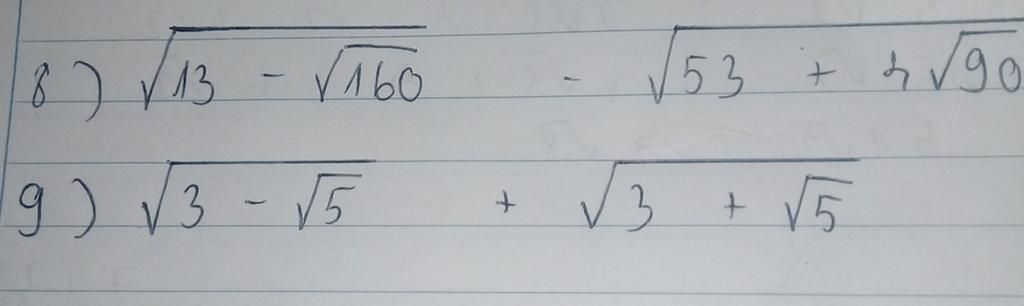 8) √(13 - √160) - √(53 + 4√90)
9) √(3 - √5) + √(3 + √5)